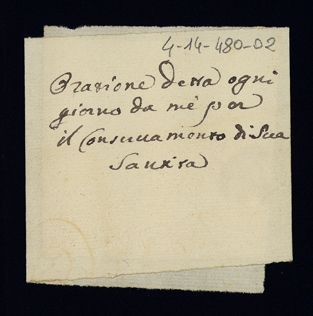 4-14-480-D2
Orazione detta ogni
giorno da mè por
il Conservamento di Sua
Santità